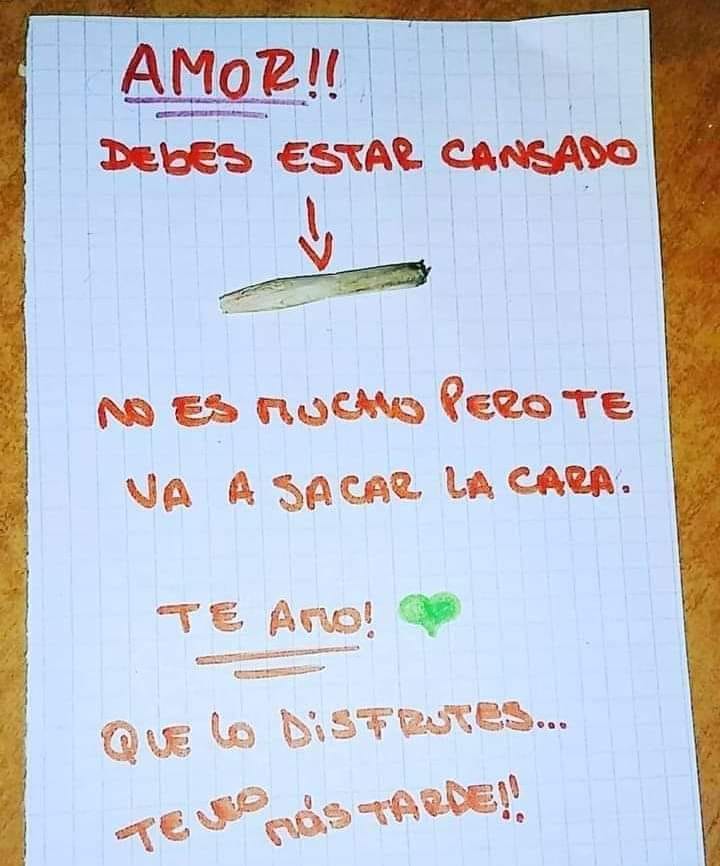 AMOR!!
DEbES ESTAR CANSADO
NO ES MUCHO PERO TE
VA A SACAR LA CARA.
TE AMO!
QUE LO DiSFRUTES...
TE VEO MáS TARDE!!